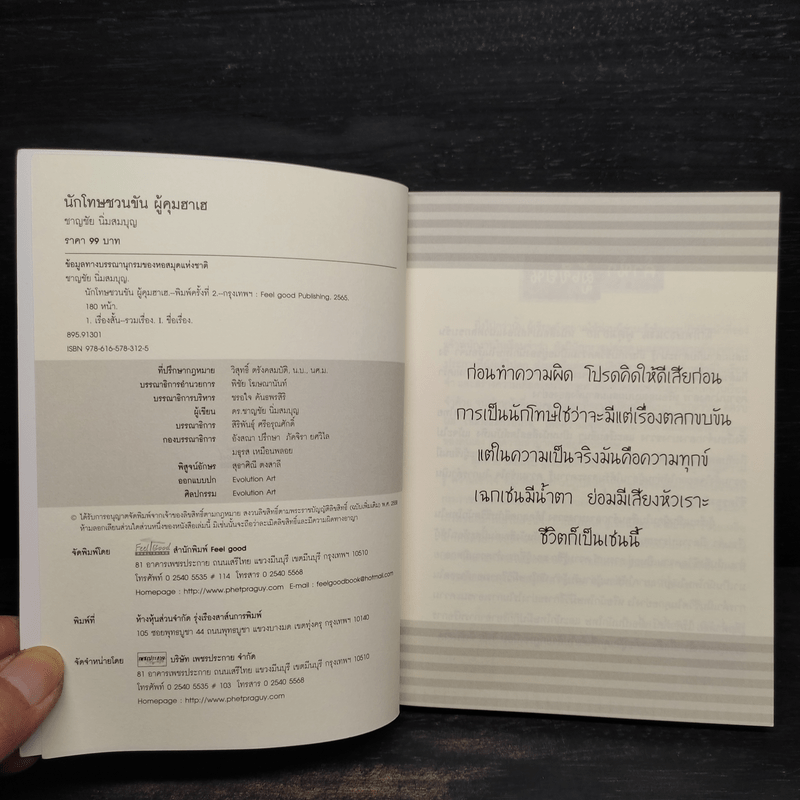 นักโทษชวนขัน ผู้คุมฮาเฮ
ชาญชัย นิ่มสมบุญ
ราคา 99 บาท
ข้อมูลทางบรรณานุกรมของหอสมุดแห่งชาติ
ชาญชัย นิ่มสมบุญ.
นักโทษชวนขัน ผู้คุมฮาเฮ.--พิมพ์ครั้งที่ 2.--กรุงเทพฯ : Feel good Publishing, 2565.
180 หน้า.
1. เรื่องสั้น--รวมเรื่อง. I. ชื่อเรื่อง.
895.91301
ISBN 978-616-578-312-5
ที่ปรึกษากฎหมาย วิสุทธิ์ ตรังคสมบัติ, น.บ., นศ.ม.
บรรณาธิการอำนวยการ พิชัย โฆษณานันท์
บรรณาธิการบริหาร ชรอใจ คันธพรสิริ
ผู้เขียน ดร.ชาญชัย นิ่มสมบุญ
บรรณาธิการ สิริพันธุ์ ศรีอรุณศักดิ์
กองบรรณาธิการ อังสณา ปรึกษา ภัคจิรา ยศวิไล
มธุรส เหมือนพลอย
พิสูจน์อักษร สุอาศิณี ดงสาลี
ออกแบบปก Evolution Art
ศิลปกรรม Evolution Art
© ได้รับการอนุญาตจัดพิมพ์จากเจ้าของลิขสิทธิ์ตามกฎหมาย สงวนลิขสิทธิ์ตามพระราชบัญญัติลิขสิทธิ์ (ฉบับเพิ่มเติม) พ.ศ. 2558
ห้ามลอกเลียนส่วนใดส่วนหนึ่งของหนังสือเล่มนี้ มิเช่นนั้นจะถือว่าละเมิดลิขสิทธิ์และมีความผิดทางอาญา
จัดพิมพ์โดย Feel Good สำนักพิมพ์ Feel good
81 อาคารเพชรประกาย ถนนเสรีไทย แขวงมีนบุรี เขตมีนบุรี กรุงเทพฯ 10510
โทรศัพท์ 0 2540 5535 # 114 โทรสาร 0 2540 5568
Homepage : http://www.phetpraguy.com E-mail : feelgoodbook@hotmail.com
พิมพ์ที่ ห้างหุ้นส่วนจำกัด รุ่งเรืองสาส์นการพิมพ์
105 ซอยพุทธบูชา 44 ถนนพุทธบูชา แขวงบางมด เขตทุ่งครุ กรุงเทพฯ 10140
จัดจำหน่ายโดย เพชรประกาย บริษัท เพชรประกาย จำกัด
81 อาคารเพชรประกาย ถนนเสรีไทย แขวงมีนบุรี เขตมีนบุรี กรุงเทพฯ 10510
โทรศัพท์ 0 2540 5535 # 103 โทรสาร 0 2540 5568
Homepage : http://www.phetpraguy.com
ก่อนทำความผิด โปรดคิดให้ดีเสียก่อน
การเป็นนักโทษใช่ว่าจะมีแต่เรื่องตลกขบขัน
แต่ในความเป็นจริงมันคือความทุกข์
เฉกเช่นมีน้ำตา ย่อมมีเสียงหัวเราะ
ชีวิตก็เป็นเช่นนี้